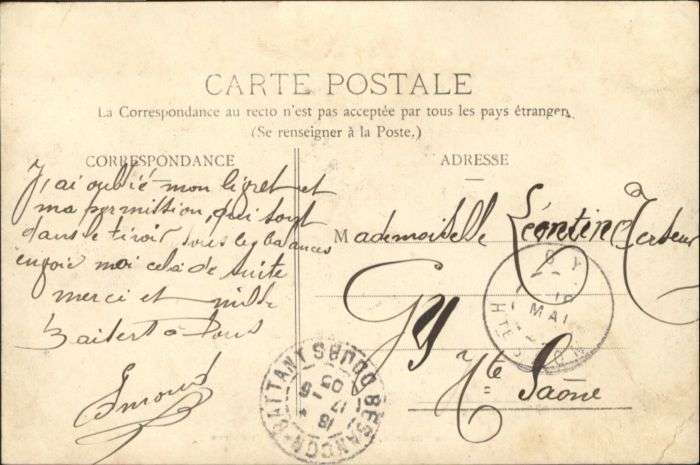 CARTE POSTALE
La Correspondance au recto n'est pas acceptée par tous les pays étrangers
(Se renseigner à la Poste.)
CORRESPONDANCE
J'ai oublié mon livret et
ma permission qui sont
dans le tiroir sous les balances
envoie moi cela de suite
merci et mille
Baisers à tous
ADRESSE
Mademoiselle Léontine
Gy
Hte Saône
MAI
BESANÇON-BATTANT DOUBS
18
17 -5
05